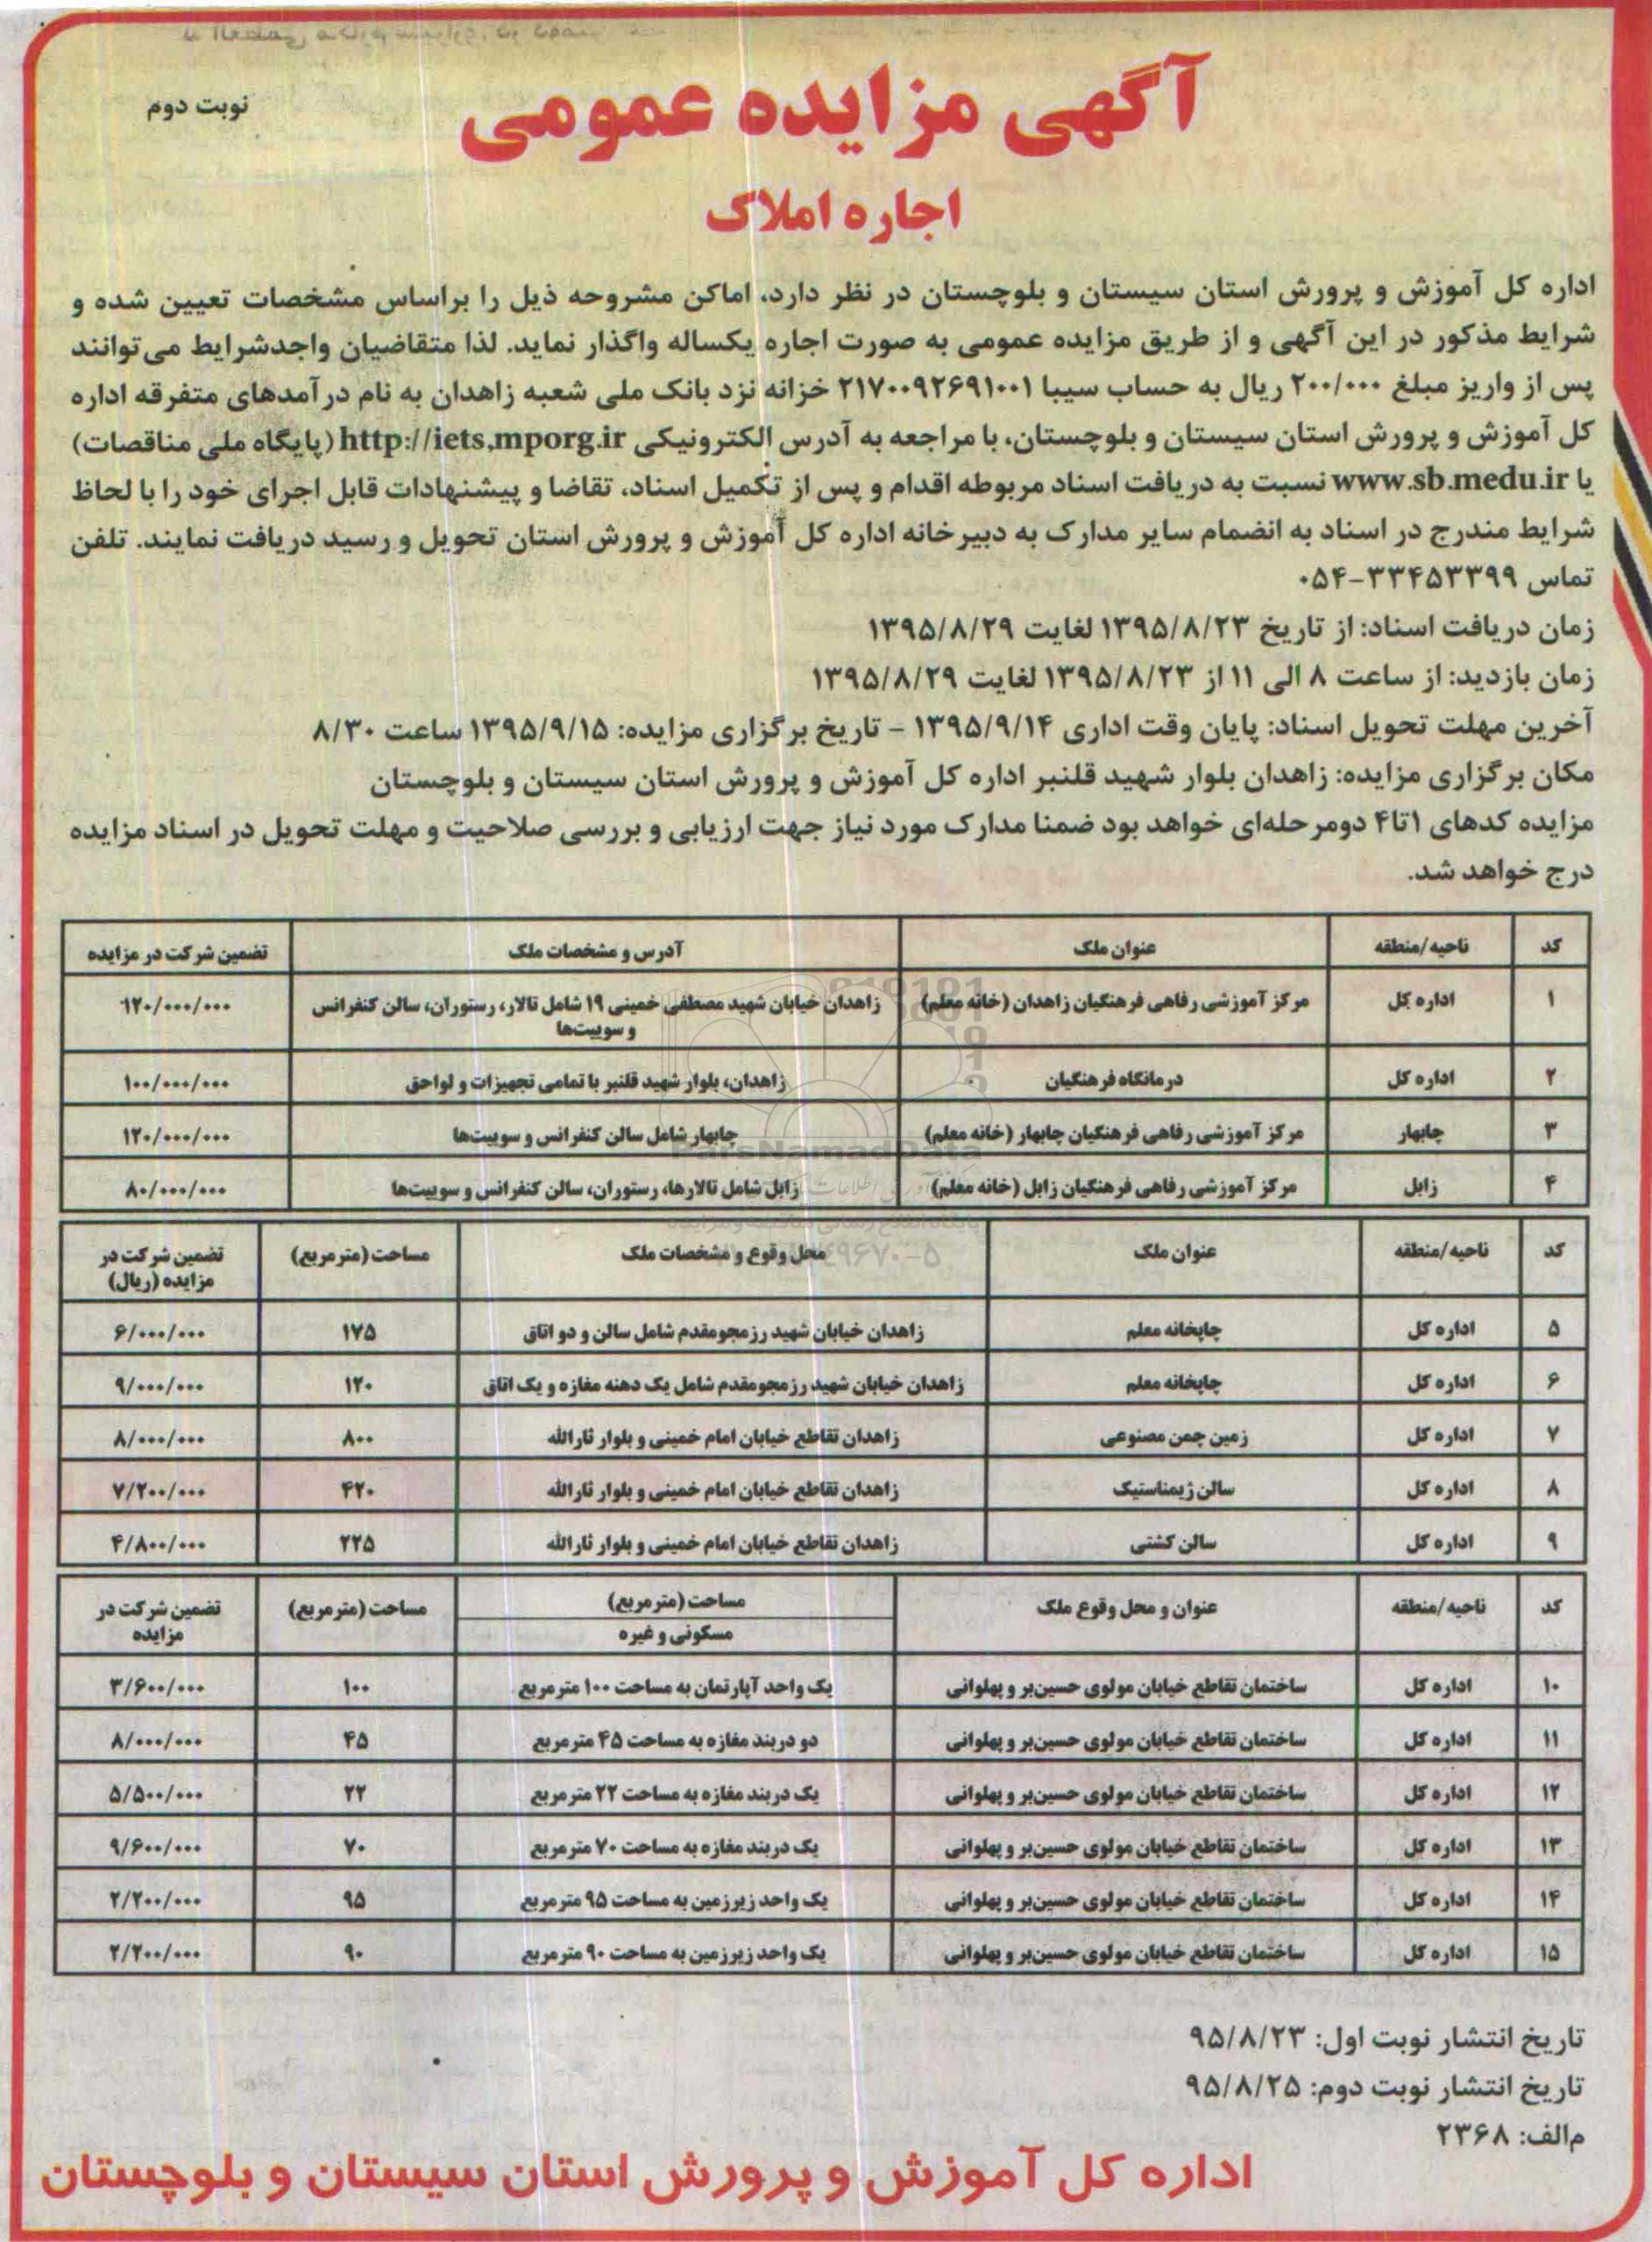 نوبت دوم
آگهی مزایده عمومی
اجاره املاک
اداره کل آموزش و پرورش استان سیستان و بلوچستان در نظر دارد، اماکن مشروحه ذیل را براساس مشخصات تعیین شده و
شرایط مذکور در این آگهی و از طریق مزایده عمومی به صورت اجاره یکساله واگذار نماید. لذا متقاضیان واجدشرایط می‌توانند
پس از واریز مبلغ ۲۰۰/۰۰۰ ریال به حساب سیبا ۲۱۷۰۰۹۲۶۹۱۰۰۱ خزانه نزد بانک ملی شعبه زاهدان به نام درآمدهای متفرقه اداره
کل آموزش و پرورش استان سیستان و بلوچستان، با مراجعه به آدرس الکترونیکی http://iets,mporg.ir (پایگاه ملی مناقصات)
یا www.sb.medu.ir نسبت به دریافت اسناد مربوطه اقدام و پس از تکمیل اسناد، تقاضا و پیشنهادات قابل اجرای خود را با لحاظ
شرایط مندرج در اسناد به انضمام سایر مدارک به دبیرخانه اداره کل آموزش و پرورش استان تحویل و رسید دریافت نمایند. تلفن
تماس ۳۳۴۵۳۳۹۹-۰۵۴
زمان دریافت اسناد: از تاریخ ۱۳۹۵/۸/۲۳ لغایت ۱۳۹۵/۸/۲۹
زمان بازدید: از ساعت ۸ الی ۱۱ از ۱۳۹۵/۸/۲۳ لغایت ۱۳۹۵/۸/۲۹
آخرین مهلت تحویل اسناد: پایان وقت اداری ۱۳۹۵/۹/۱۴ - تاریخ برگزاری مزایده: ۱۳۹۵/۹/۱۵ ساعت ۸/۳۰
مکان برگزاری مزایده: زاهدان بلوار شهید قلنبر اداره کل آموزش و پرورش استان سیستان و بلوچستان
مزایده کدهای ۱تا۴ دومرحله‌ای خواهد بود ضمنا مدارک مورد نیاز جهت ارزیابی و بررسی صلاحیت و مهلت تحویل در اسناد مزایده
درج خواهد شد.
کد ناحیه/منطقه عنوان ملک آدرس و مشخصات ملک تضمین شرکت در مزایده
۱ اداره کل مرکز آموزشی رفاهی فرهنگیان زاهدان (خانه معلم) زاهدان خیابان شهید مصطفی خمینی ۱۹ شامل تالار، رستوران، سالن کنفرانس ۱۲۰/۰۰۰/۰۰۰
و سوییت‌ها
۲ اداره کل درمانگاه فرهنگیان زاهدان، بلوار شهید قلنبر با تمامی تجهیزات و لواحق ۱۰۰/۰۰۰/۰۰۰
۳ چابهار مرکز آموزشی رفاهی فرهنگیان چابهار (خانه معلم) چابهار شامل سالن کنفرانس و سوییت‌ها ۱۲۰/۰۰۰/۰۰۰
ParsNamadData
۴ زابل مرکز آموزشی رفاهی فرهنگیان زابل (خانه معلم) زابل شامل تالارها، رستوران، سالن کنفرانس و سوییت‌ها ۸۰/۰۰۰/۰۰۰
کد ناحیه/منطقه عنوان ملک محل وقوع و مشخصات ملک مساحت (مترمربع) تضمین شرکت در
مزایده (ریال)
۵ اداره کل چاپخانه معلم زاهدان خیابان شهید رزمجومقدم شامل سالن و دو اتاق ۱۷۵ ۶/۰۰۰/۰۰۰
۶ اداره کل چاپخانه معلم زاهدان خیابان شهید رزمجومقدم شامل یک دهنه مغازه و یک اتاق ۱۲۰ ۹/۰۰۰/۰۰۰
۷ اداره کل زمین چمن مصنوعی زاهدان تقاطع خیابان امام خمینی و بلوار ثارالله ۸۰۰ ۸/۰۰۰/۰۰۰
۸ اداره کل سالن ژیمناستیک زاهدان تقاطع خیابان امام خمینی و بلوار ثارالله ۴۲۰ ۷/۲۰۰/۰۰۰
۹ اداره کل سالن کشتی زاهدان تقاطع خیابان امام خمینی و بلوار ثارالله ۲۲۵ ۴/۸۰۰/۰۰۰
کد ناحیه/منطقه عنوان و محل وقوع ملک مساحت (مترمربع) مساحت (مترمربع) تضمین شرکت در
مسکونی و غیره مزایده
۱۰ اداره کل ساختمان تقاطع خیابان مولوی حسین‌بر و پهلوانی یک واحد آپارتمان به مساحت ۱۰۰ مترمربع ۱۰۰ ۳/۶۰۰/۰۰۰
۱۱ اداره کل ساختمان تقاطع خیابان مولوی حسین‌بر و پهلوانی دو دربند مغازه به مساحت ۴۵ مترمربع ۴۵ ۸/۰۰۰/۰۰۰
۱۲ اداره کل ساختمان تقاطع خیابان مولوی حسین‌بر و پهلوانی یک دربند مغازه به مساحت ۲۲ مترمربع ۲۲ ۵/۵۰۰/۰۰۰
۱۳ اداره کل ساختمان تقاطع خیابان مولوی حسین‌بر و پهلوانی یک دربند مغازه به مساحت ۷۰ مترمربع ۷۰ ۹/۶۰۰/۰۰۰
۱۴ اداره کل ساختمان تقاطع خیابان مولوی حسین‌بر و پهلوانی یک واحد زیرزمین به مساحت ۹۵ مترمربع ۹۵ ۲/۲۰۰/۰۰۰
۱۵ اداره کل ساختمان تقاطع خیابان مولوی حسین‌بر و پهلوانی یک واحد زیرزمین به مساحت ۹۰ مترمربع ۹۰ ۲/۲۰۰/۰۰۰
تاریخ انتشار نوبت اول: ۹۵/۸/۲۳
تاریخ انتشار نوبت دوم: ۹۵/۸/۲۵
م‌الف: ۲۳۶۸
اداره کل آموزش و پرورش استان سیستان و بلوچستان